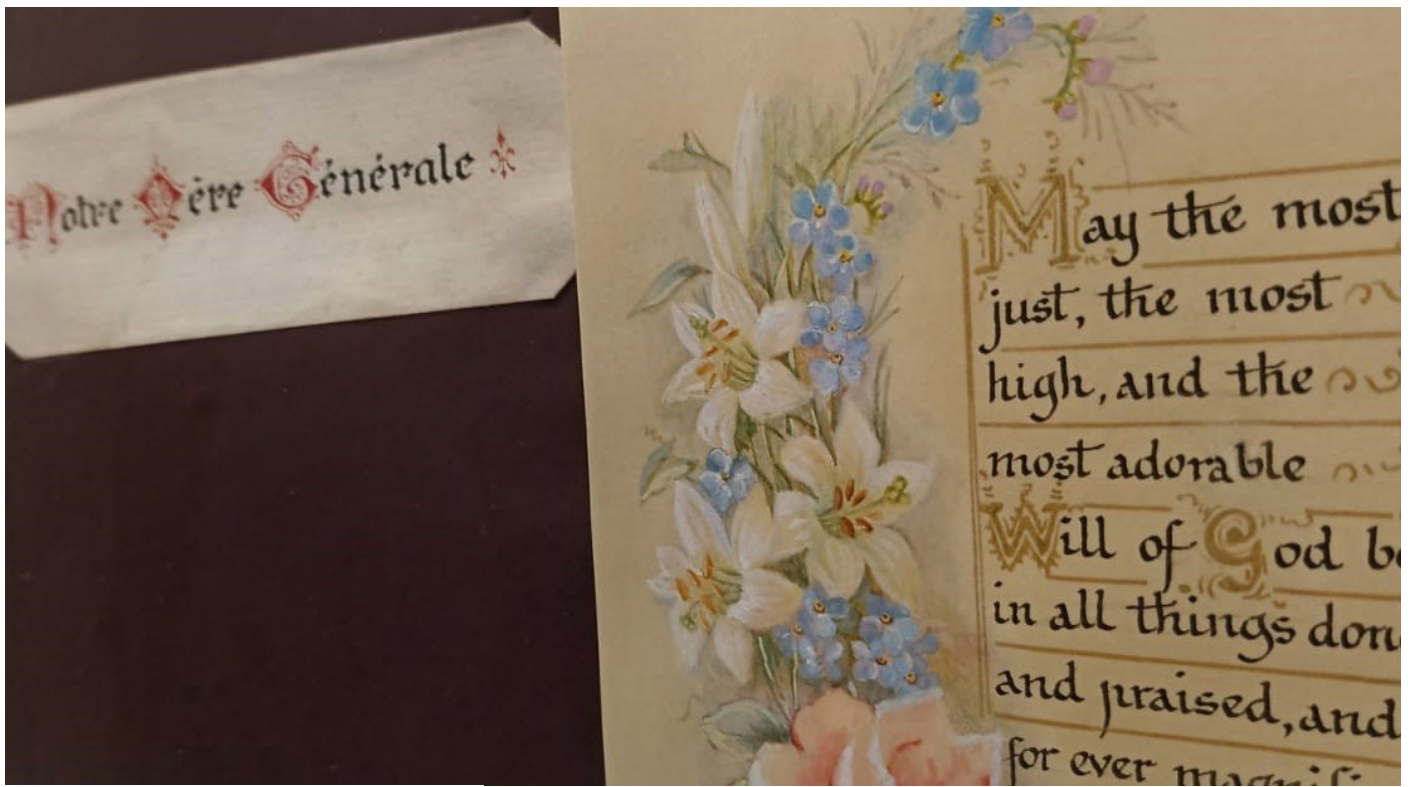 Notre Mère Générale
May the most
just, the most
high, and the
most adorable
Will of God be
in all things don
and praised, and
for ever magnifi